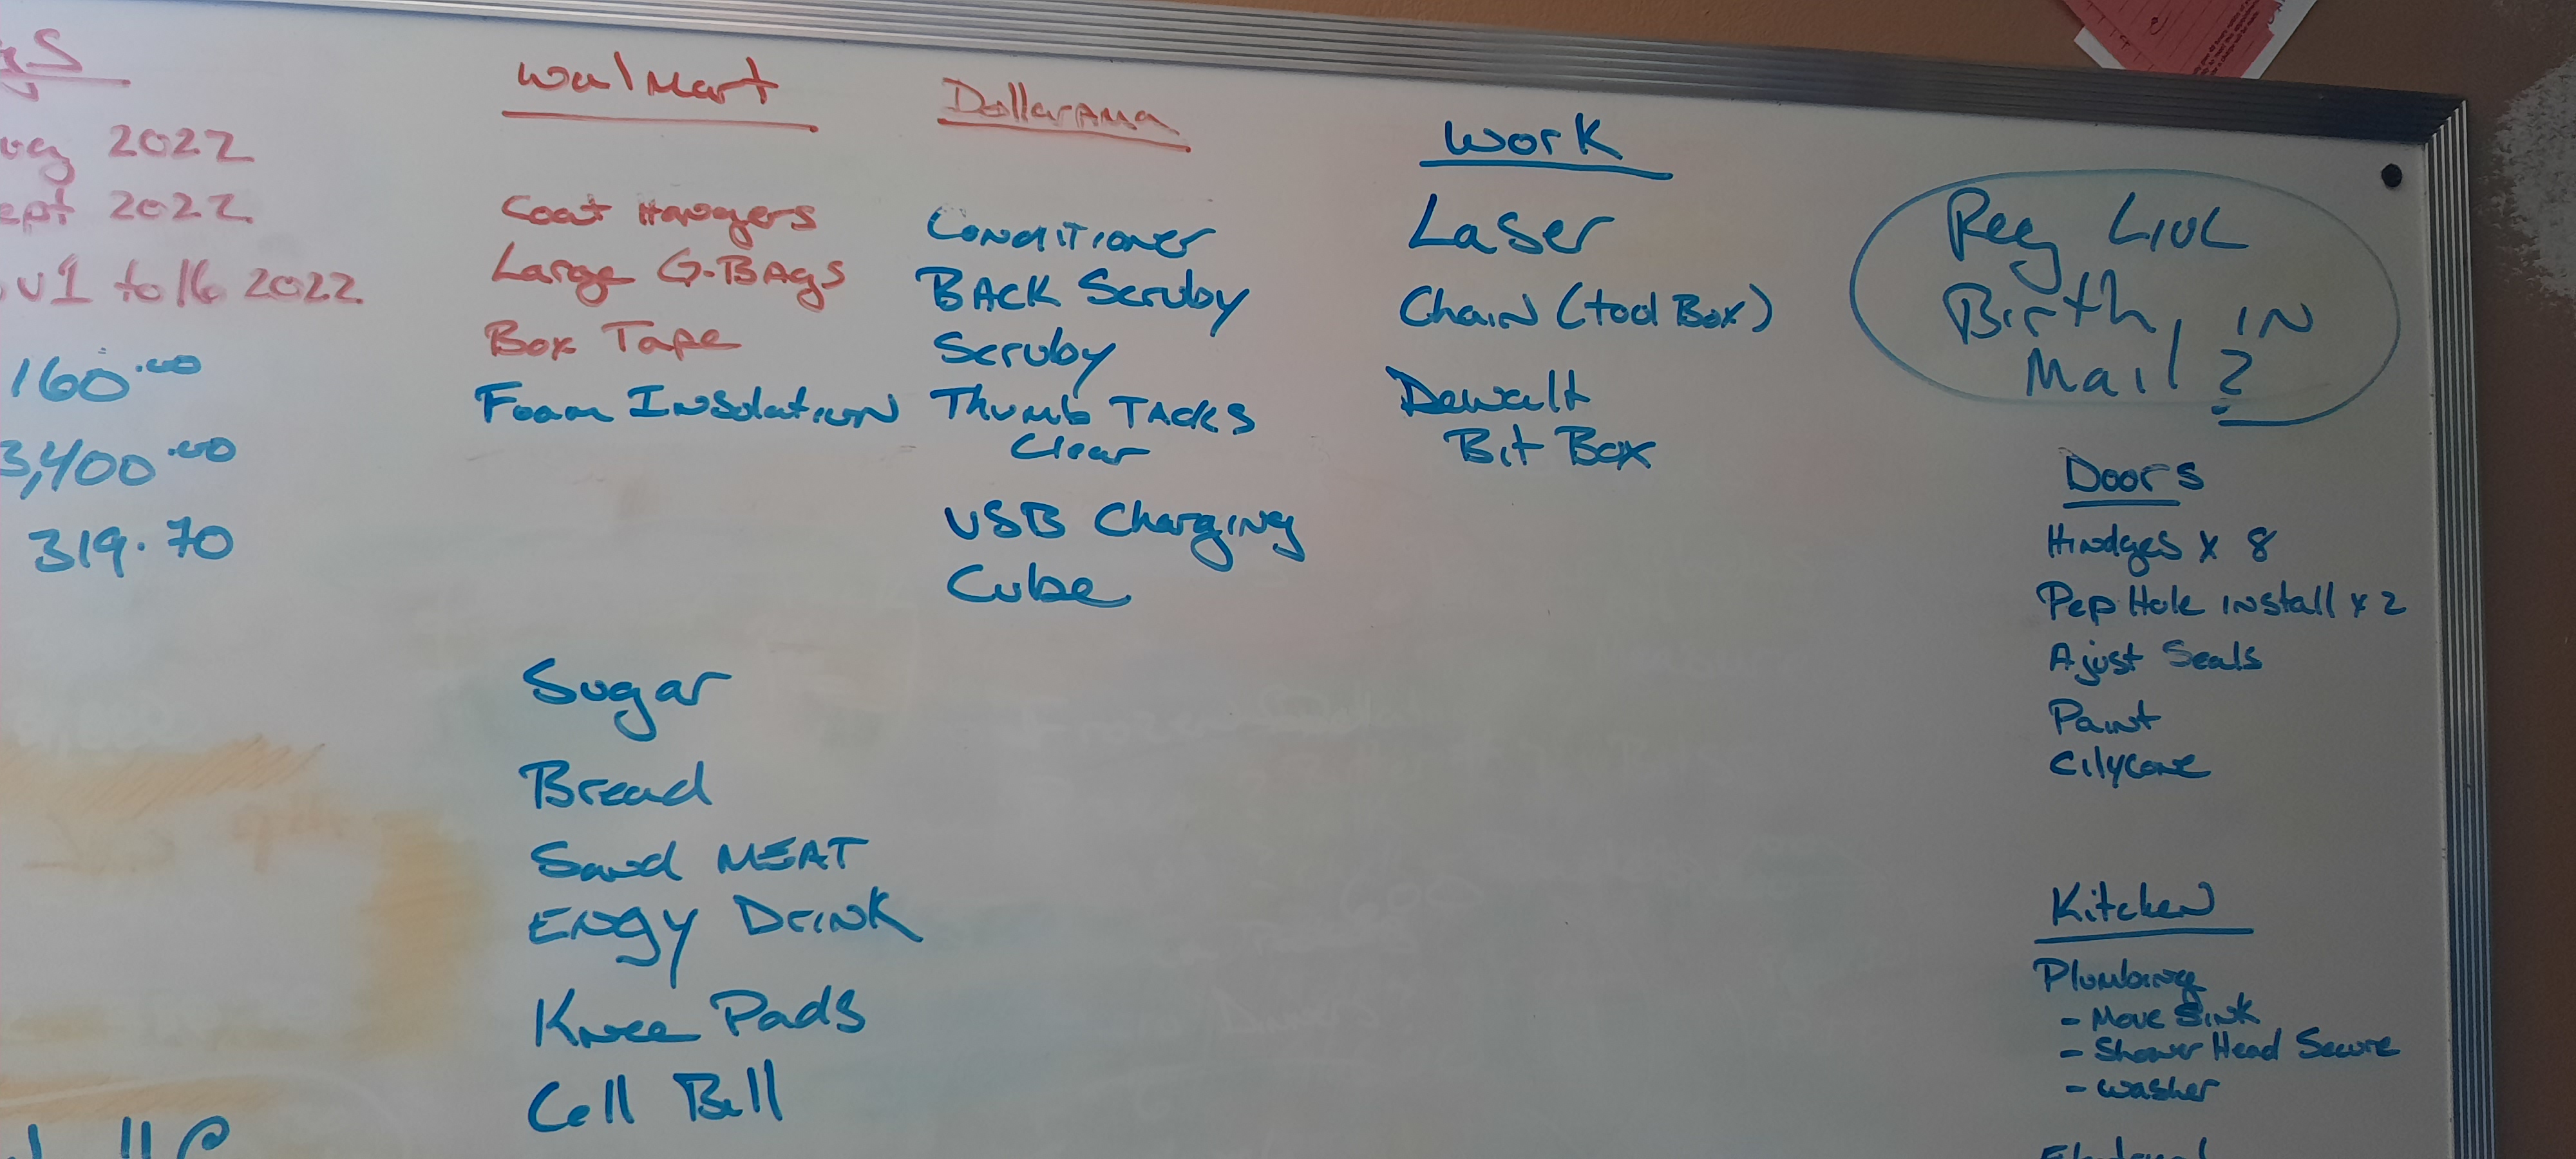 2022
2022
v1 to 16 2022
160.00
3,400.00
319.70
Walmart
Coat Hangers
Large G-BAgs
Box Tape
Foam Insolation
Sugar
Bread
Sand MEAT
ENgy Drink
Knee Pads
Cell Bill
Dollarama
Conditioner
BACK Scruby
Scruby
Thumb TACKS
Clear
USB Charging
Cube
Work
Laser
Chain (tool Box)
Dewalt
Bit Box
Reg
Birth, in
Mail?
Doors
Hindges x 8
Pep Hole install x 2
Ajust Seals
Paint
Cilycone
Kitchen
Plumbing
- Move Sink
- Shower Head Secure
- washer